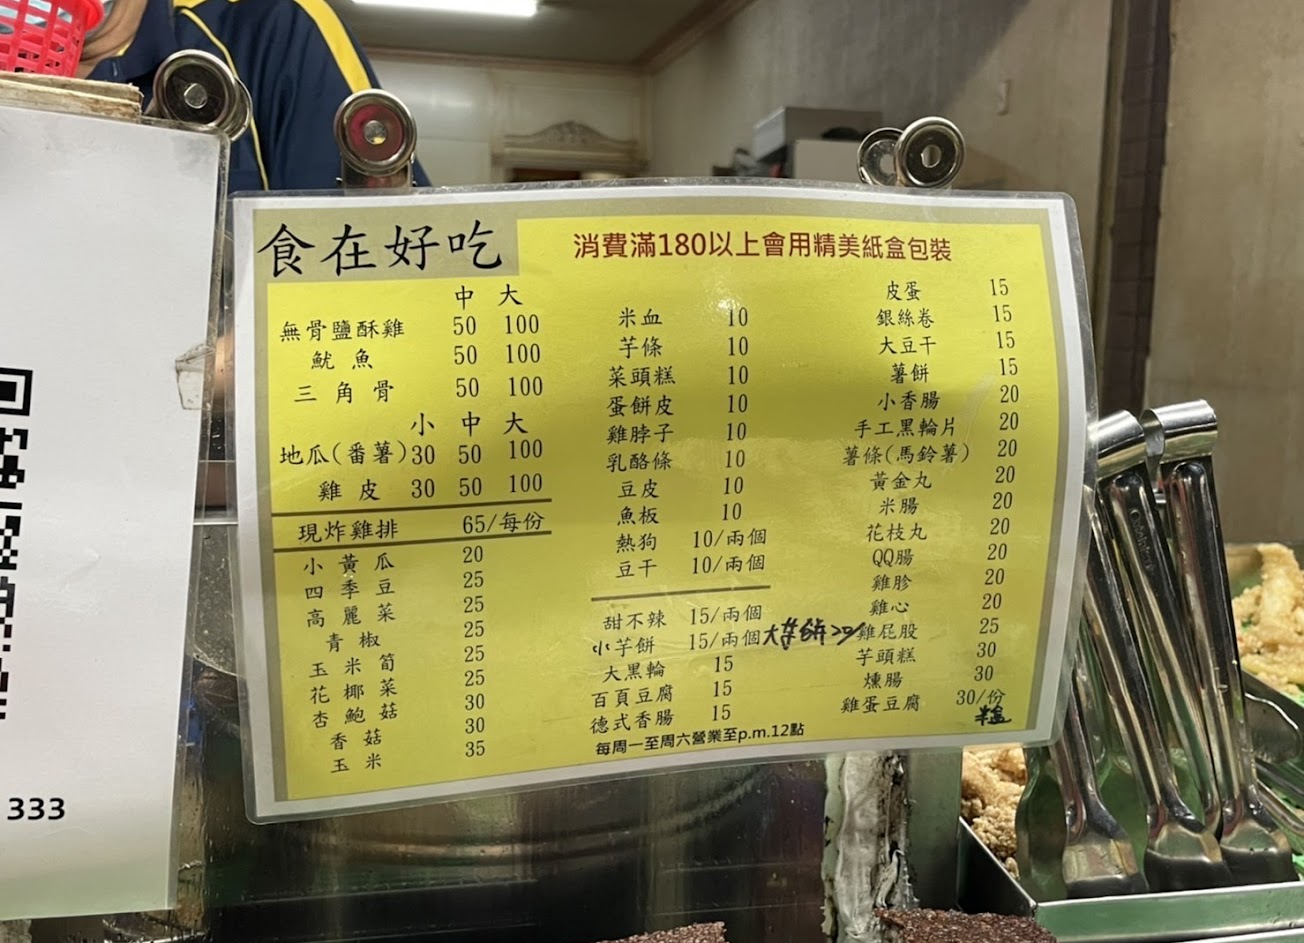 食在好吃
消費滿180以上會用精美紙盒包裝
中 大
無骨鹽酥雞 50 100
魷魚 50 100
三角骨 50 100
小 中 大
地瓜(番薯) 30 50 100
雞皮 30 50 100
現炸雞排 65/每份
小黃瓜 20
四季豆 25
高麗菜 25
青椒 25
玉米筍 25
花椰菜 25
杏鮑菇 30
香菇 30
玉米 35
米血 10
芋條 10
菜頭糕 10
蛋餅皮 10
雞脖子 10
乳酪條 10
豆皮 10
魚板 10
熱狗 10/兩個
豆干 10/兩個
甜不辣 15/兩個
小芋餅 15/兩個 大芋餅20/
大黑輪 15
百頁豆腐 15
德式香腸 15
每周一至周六營業至p.m.12點
皮蛋 15
銀絲卷 15
大豆干 15
薯餅 15
小香腸 20
手工黑輪片 20
薯條(馬鈴薯) 20
黃金丸 20
米腸 20
花枝丸 20
QQ腸 20
雞胗 20
雞心 20
雞屁股 25
芋頭糕 30
燻腸 30
雞蛋豆腐 30/份
半盒
333